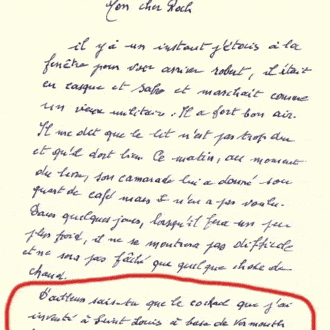 Mon cher Roch
il y a un instant j'étais à la
fenêtre pour voir arriver robert, il était
en casque et sabre et marchait comme
un vieux militaire. Il a fort bon air.
Il me dit que le lit n'est pas trop dur
et qu'il dort bien. Ce matin, au moment
du           , son camarade lui a donné son
quart de café mais il n'en a pas voulu.
Dans quelques jours, lorsqu'il fera un peu
plus froid, il ne se montrera pas difficile
et ne sera pas fâché que quelque chose de
chaud.
D'ailleurs sais-tu que le cocktail que j'ai
inventé à Saint Louis à base de Vermouth